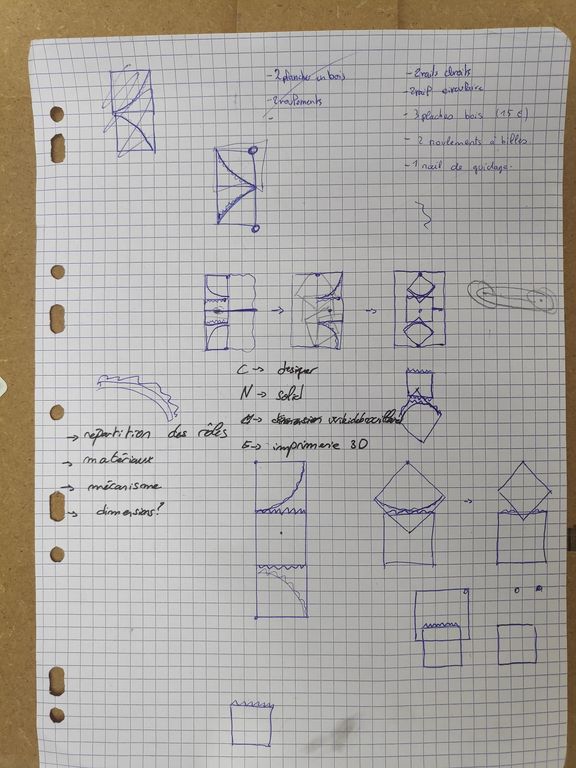 - 2 planches en bois
- 2 roulements
-
- 2 rails droits
- 2 rail circulaire
- 3 plaches bois (15 €)
- 2 roulements à billes
- 1 rail de guidage.
C → designer
N → solid
E → imprimerie 3D
→ répartition des rôles
→ matériaux
→ mécanisme
→ dimensions?